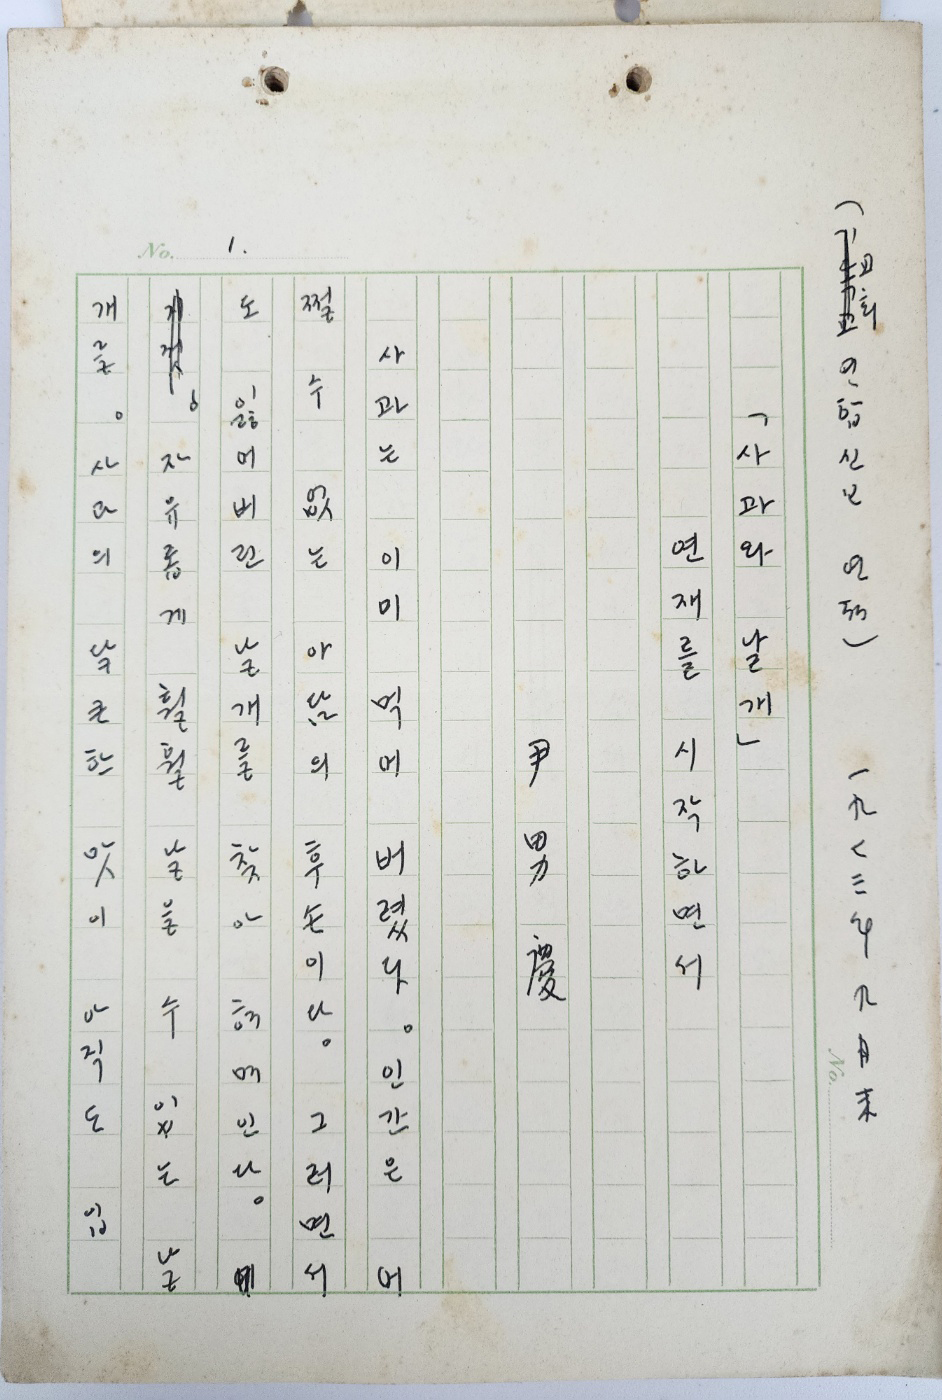 (교회 연합신보 연재) 一九八三年 九月末
No. 1.
「사과와 날개」
연재를 시작하면서
尹男慶
사과는 이미 먹어 버렸다。인간은 어
쩔 수 없는 아담의 후손이다。그러면서
도 잃어버린 날개를 찾아 헤매인다。
자유롭게 훨훨 날을 수 있는 날
개를。사과의 달큰한 맛이 아직도 입
No.